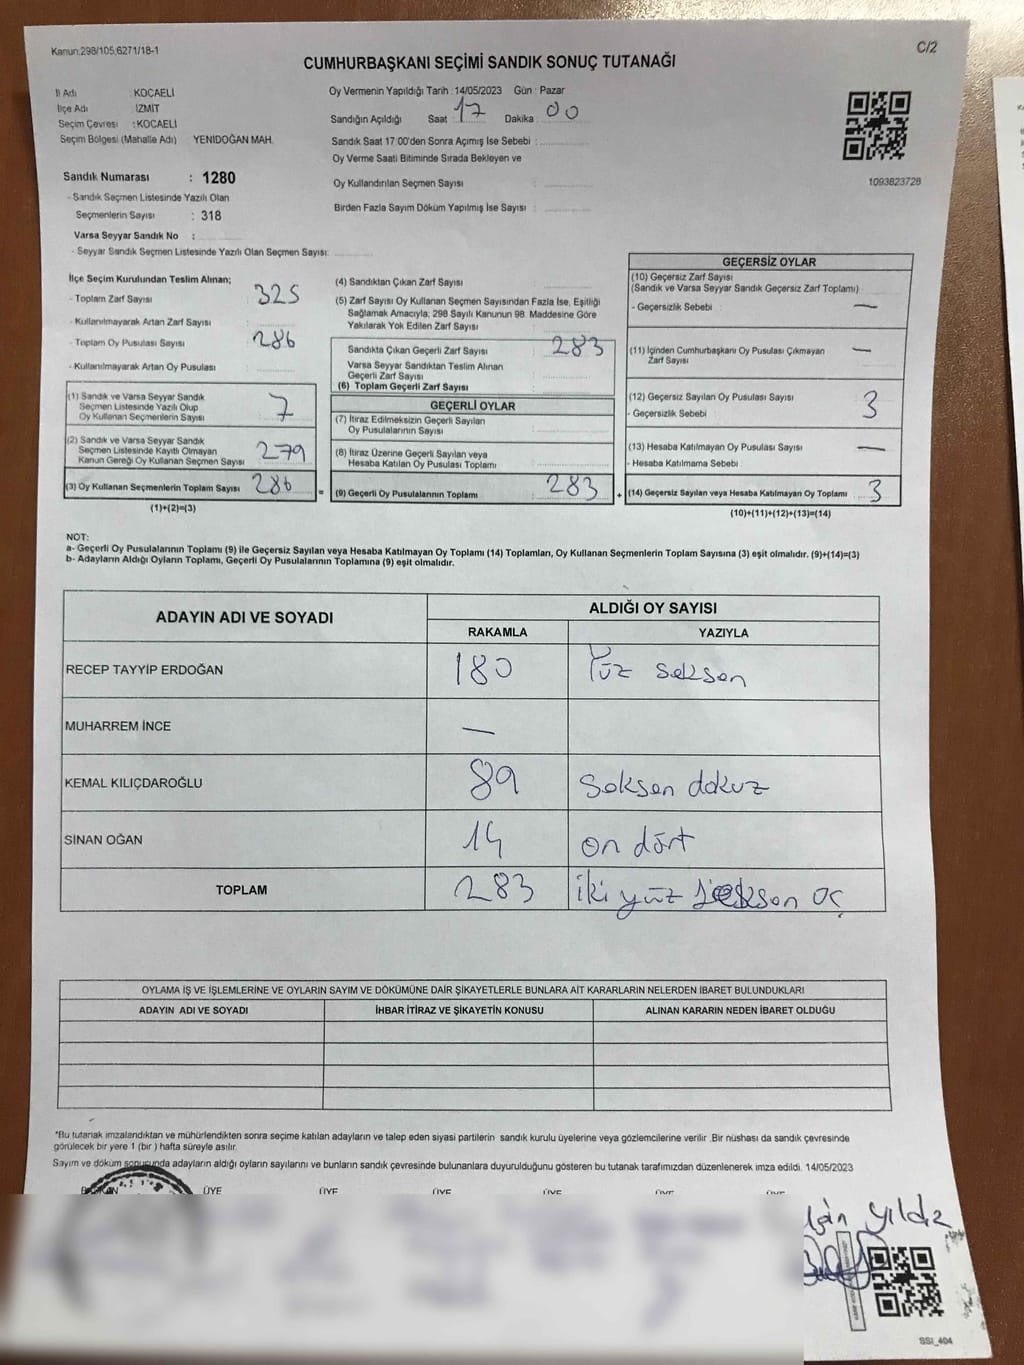 Kanun:298/105,6271/18-1
C/2
CUMHURBAŞKANI SEÇİMİ SANDIK SONUÇ TUTANAĞI
İl Adı : KOCAELİ
İlçe Adı : İZMİT
Seçim Çevresi : KOCAELİ
Seçim Bölgesi (Mahalle Adı) YENİDOĞAN MAH.
Oy Vermenin Yapıldığı Tarih : 14/05/2023 Gün : Pazar
Sandığın Açıldığı Saat 17 Dakika 00
Sandık Saat 17:00'den Sonra Açımış İse Sebebi :
Oy Verme Saati Bitiminde Sırada Bekleyen ve
Oy Kullandırılan Seçmen Sayısı
Birden Fazla Sayım Döküm Yapılmış İse Sayısı :
1093823728
Sandık Numarası : 1280
- Sandık Seçmen Listesinde Yazılı Olan
Seçmenlerin Sayısı : 318
Varsa Seyyar Sandık No :
- Seyyar Sandık Seçmen Listesinde Yazılı Olan Seçmen Sayısı:
İlçe Seçim Kurulundan Teslim Alınan;
- Toplam Zarf Sayısı : 325
- Kullanılmayarak Artan Zarf Sayısı :
- Toplam Oy Pusulası Sayısı : 286
- Kullanılmayarak Artan Oy Pusulası :
(1) Sandık ve Varsa Seyyar Sandık
Seçmen Listesinde Yazılı Olup
Oy Kullanan Seçmenlerin Sayısı 7
(2) Sandık ve Varsa Seyyar Sandık
Seçmen Listesinde Kayıtlı Olmayan
Kanun Gereği Oy Kullanan Seçmen Sayısı 279
(3) Oy Kullanan Seçmenlerin Toplam Sayısı 286
(1)+(2)=(3)
(4) Sandıktan Çıkan Zarf Sayısı
(5) Zarf Sayısı Oy Kullanan Seçmen Sayısından Fazla İse, Eşitliği
Sağlamak Amacıyla; 298 Sayılı Kanunun 98. Maddesine Göre
Yakılarak Yok Edilen Zarf Sayısı
Sandıkta Çıkan Geçerli Zarf Sayısı 283
Varsa Seyyar Sandıktan Teslim Alınan
Geçerli Zarf Sayısı
(6) Toplam Geçerli Zarf Sayısı
GEÇERLİ OYLAR
(7) İtiraz Edilmeksizin Geçerli Sayılan
Oy Pusulalarının Sayısı
(8) İtiraz Üzerine Geçerli Sayılan veya
Hesaba Katılan Oy Pusulası Toplamı
= (9) Geçerli Oy Pusulalarının Toplamı 283 +
GEÇERSİZ OYLAR
(10) Geçersiz Zarf Sayısı
(Sandık ve Varsa Seyyar Sandık Geçersiz Zarf Toplamı)
- Geçersizlik Sebebi : —
(11) İçinden Cumhurbaşkanı Oy Pusulası Çıkmayan
Zarf Sayısı —
(12) Geçersiz Sayılan Oy Pusulası Sayısı : 3
- Geçersizlik Sebebi
(13) Hesaba Katılmayan Oy Pusulası Sayısı : —
- Hesaba Katılmama Sebebi
(14) Geçersiz Sayılan veya Hesaba Katılmayan Oy Toplamı 3
(10)+(11)+(12)+(13)=(14)
NOT:
a- Geçerli Oy Pusulalarının Toplamı (9) ile Geçersiz Sayılan veya Hesaba Katılmayan Oy Toplamı (14) Toplamları, Oy Kullanan Seçmenlerin Toplam Sayısına (3) eşit olmalıdır. (9)+(14)=(3)
b- Adayların Aldığı Oyların Toplamı, Geçerli Oy Pusulalarının Toplamına (9) eşit olmalıdır.
ADAYIN ADI VE SOYADI
ALDIĞI OY SAYISI
RAKAMLA YAZIYLA
RECEP TAYYİP ERDOĞAN 180 Yüz seksen
MUHARREM İNCE —
KEMAL KILIÇDAROĞLU 89 Seksen dokuz
SİNAN OĞAN 14 on dört
TOPLAM 283 iki yüz seksen üç
OYLAMA İŞ VE İŞLEMLERİNE VE OYLARIN SAYIM VE DÖKÜMÜNE DAİR ŞİKAYETLERLE BUNLARA AİT KARARLARIN NELERDEN İBARET BULUNDUKLARI
ADAYIN ADI VE SOYADI İHBAR İTİRAZ VE ŞİKAYETİN KONUSU ALINAN KARARIN NEDEN İBARET OLDUĞU
*Bu tutanak imzalandıktan ve mühürlendikten sonra seçime katılan adayların ve talep eden siyasi partilerin sandık kurulu üyelerine veya gözlemcilerine verilir .Bir nüshası da sandık çevresinde
görülecek bir yere 1 (bir ) hafta süreyle asılır.
Sayım ve döküm sonusunda adayların aldığı oyların sayılarını ve bunların sandık çevresinde bulunanlara duyurulduğunu gösteren bu tutanak tarafımızdan düzenlenerek imza edildi. 14/05/2023
BAŞKAN ÜYE ÜYE ÜYE ÜYE ÜYE ÜYE
yıldız
SSI_404